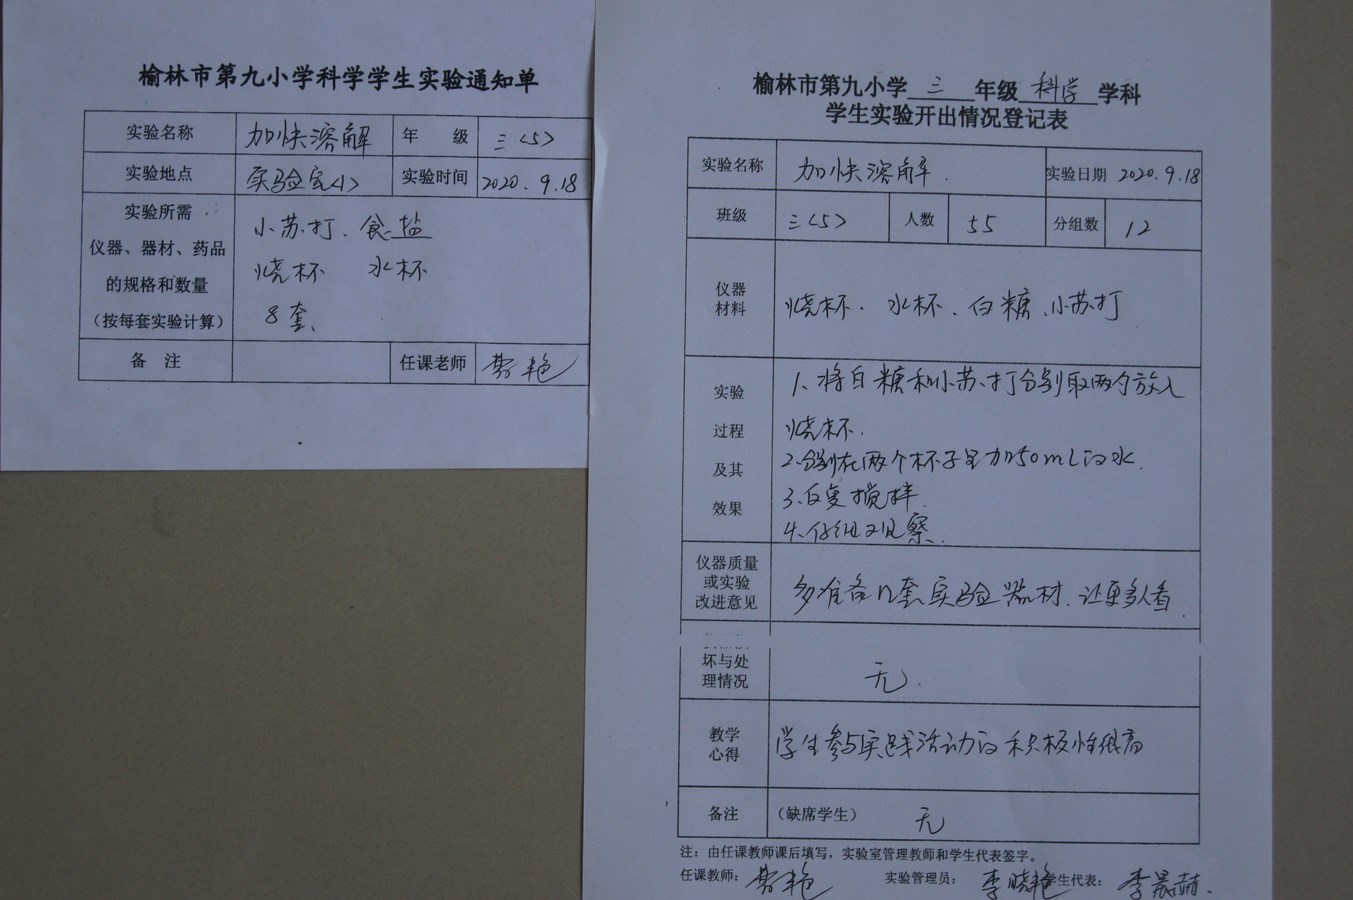 榆林市第九小学科学学生实验通知单
实验名称 加快溶解 年 级 三<5>
实验地点 实验室<1> 实验时间 2020.9.18
实验所需
仪器、器材、药品
的规格和数量
（按每套实验计算）
小苏打、食盐
烧杯 水杯
8套
备 注 任课老师
榆林市第九小学 三 年级 科学 学科
学生实验开出情况登记表
实验名称 加快溶解. 实验日期 2020.9.18
班级 三<5> 人数 55 分组数 12
仪器
材料
烧杯. 水杯. 白糖、小苏打
实验
过程
及其
效果
1、将白糖和小苏打分别取两勺放入
烧杯.
2、分别在两个杯子里加50mL的水.
3、反复搅拌.
4、仔细观察.
仪器质量
或实验
改进意见
多准备几套实验器材、让更多人看.
坏与处
理情况
无.
教学
心得
学生参与实践活动的积极性很高
备注 （缺席学生） 无
注：由任课教师课后填写，实验室管理教师和学生代表签字。
任课教师： 实验管理员： 李晓艳 学生代表： 李晨赫.